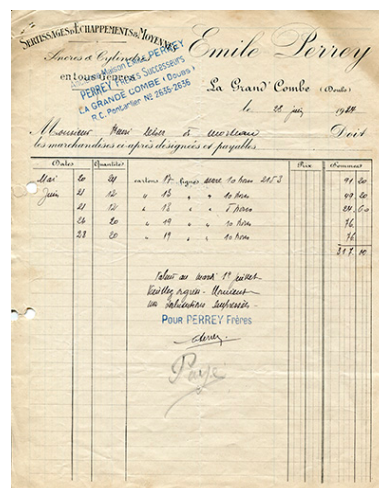 SERTISSAGES D'ÉCHAPPEMENTS & MOYENNES
Ancres & Cylindres
en tous Genres
Ancienne Maison Emile PERREY
PERREY Frères Successeurs
LA GRANDE COMBE (Doubs)
R.C. Pontarlier Nº 2635-2636
Emile Perrey
La Grand' Combe (Doubs)
le 28 juin 1924
Monsieur Henri à Morteau Doit
les marchandises ci-après désignées et payables
Dates Quantités Prix Sommes
Mai 20 24 cartons 17 lignes 10 hores 2153 91 20
Juin 21 12 " 18 " " 10 hores 49 20
21 12 " 18 " " 5 hores 24 60
26 20 " 19 " " 10 hores 76
28 20 " 19 " 10 hores 76
317
Valeur au 1er juillet
Veuillez agréer Monsieur
nos salutations empressées
POUR PERREY Frères
Perrey
Payé